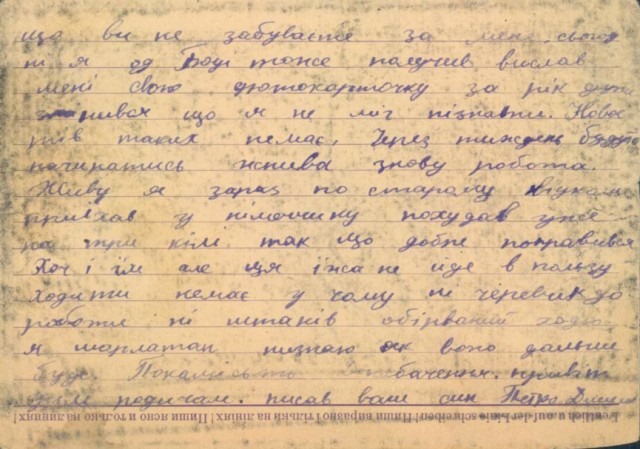 що ви не забуваєте за мене свого
я од Боді тоже палучив вислав
мені свою фотокарточку за рік
що я не міг пізнати. Ново
стів таких немає, Через тиждень буде
начинатись жнива знову робота.
Живу я зараз по старому
приїхав у німеччину похудав уже
на три кілі так що добре поправився
Хоч і їм але ця їжа не йде в пользу
ходити немає у чому ні черевик до
роботи ні штанів обірваний ходю
я шарлатан незнаю як воно дальше
буде Покаместь до побачення. привіт
усім родичам. писав ваш син Петро
Deutlich u. auf der Linie schreiben! Пиши виразно і тільки на лініях! Пиши ясно и только на линиях!